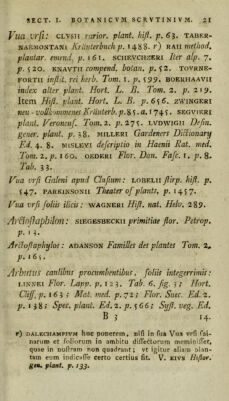 SECT. I. BOTANICVM SCRVTINIVM. 21
Vua vrſi: CLVSII rarior. plant. hiſt. p. 63. TABER-
NAEMONTANI Kräuterbuch p. 1488. r) RAII method.
plantar. emend. p. 161. SCHEVCHZERI Iter alp. 7.
p. 520. KNAVTH compend. botan. p. 52. TOVRNE-
FORTII inſtit. rei herb. Tom. 1. p. 599. BOERHAAVII
index alter plant. Hort. L. B. Tom. 2. p. 219.
Item Hiſt. plant. Hort. L. B. p. 656. ZWINGERI
neu-vollkommenes Kräuterb. p. 85. a. 1745. SEGVIERI
plant. Veronenſ. Tom. 2. p. 275. LVDWIGII Defin.
gener. plant. p. 38. MILLERI Gardeners Dictionary
Ed. 4. 8. MISLEVI deſcriptio in Haenii Rat. med.
Tom. 2. p. 160. OEDERI Flor. Dan. Faſc. 1. p. 8.
Tab. 33.
Vua vrſi Galeni apud Cluſium: LOBELII ſtirp. hiſt. p.
547. PARKINSONII Theater of plants, p. 1457.
Vua vrſi foliis ilicis: WAGNERI Hiſt. nat. Helv. 289.
Arctoſtaphilon: SIEGESBECKII primitiae flor. Petrop.
p. 13.
Arctoſtaphyloe: ADANSON Familles des plantes Tom. 2.
p. 165.
Arbutus caulibus procumbentibus, foliis integerrimis:
LINNEI Flor. Lapp. p. 123. Tab. 6. fig. 3; Hort.
Cliff. p. 163; Mat. med. p. 72; Flor. Suec. Ed. 2.
p. 138; Spec. plant. Ed. 2. p. 566; Syſt. veg. Ed.
B 3 14.
r) DALECHAMPIVM huc ponerem, niſi in ſua Vua vrſi ſpi-
narum et foliorum in ambitu diſſectorum meminiſſet,
quae in noſtram non quadrant; vt igitur aliam plan-
tam eum indicaſſe certo certius ſit. V. EIVS Hiſtor.
gen. plant. p. 133.